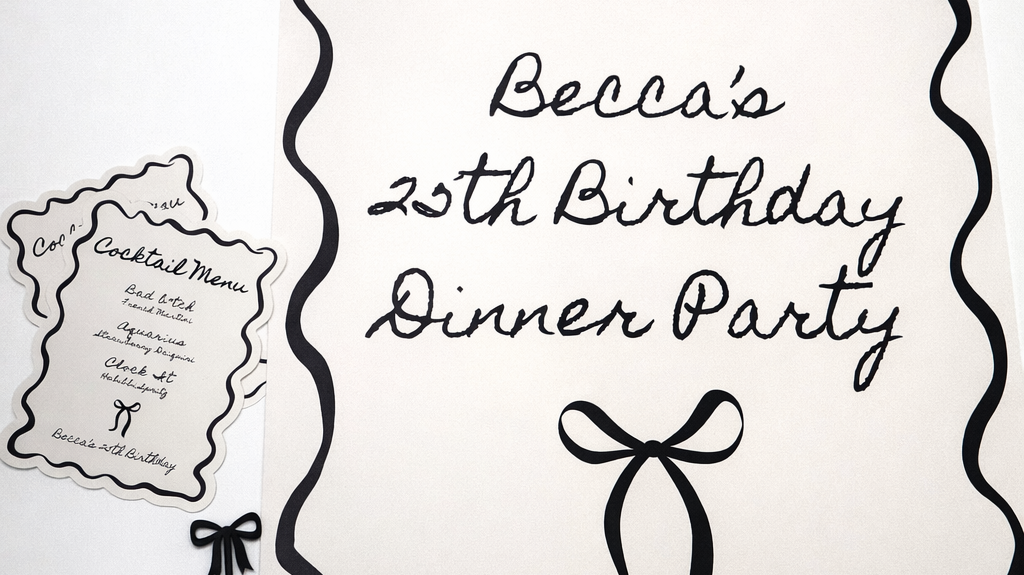 Becca's
25th Birthday
Dinner Party
Cocktail Menu
Bad B*tch
French Martini
Aquarius
Strawberry Daiquiri
Clock It
Becca's 25th Birthday